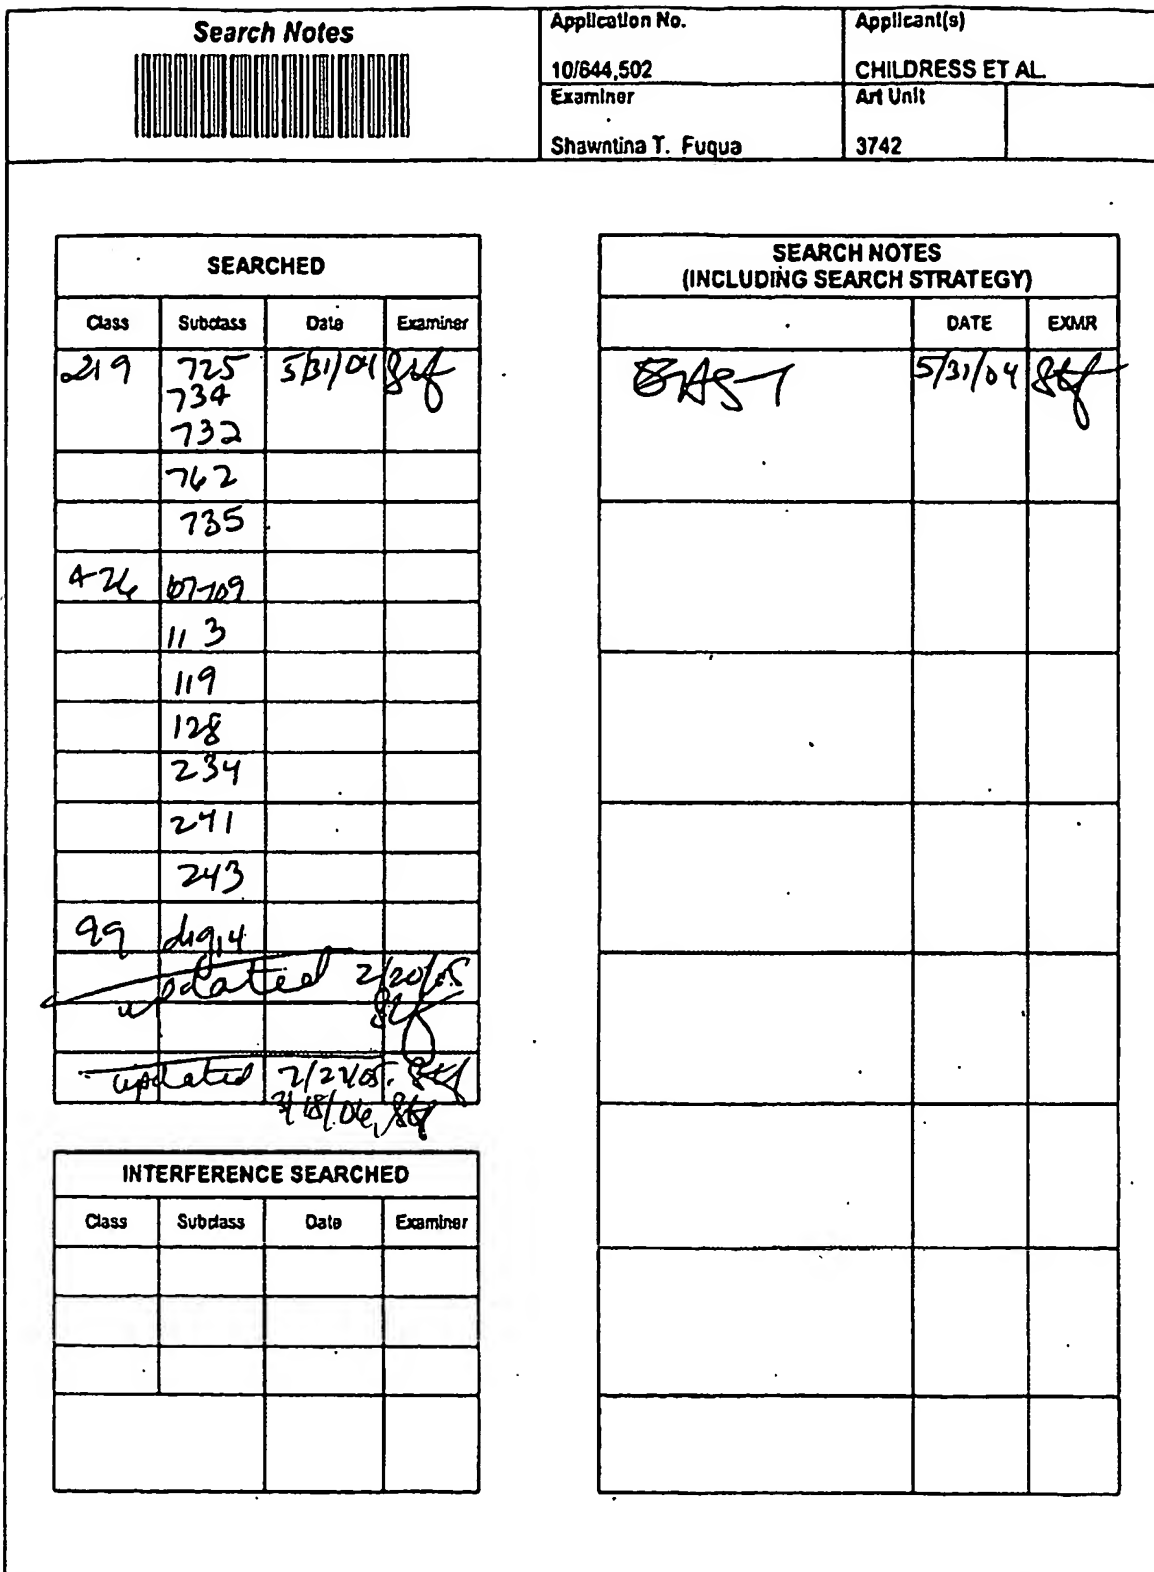 Search Notes
Application No.
10/644,502
Applicant(s)
CHILDRESS ET AL.
Examiner
Shawntina T. Fuqua
Art Unit
3742
SEARCHED
Class Subclass Date Examiner
219 725 5/31/04 stf
734
732
762
735
426 107-109
113
119
128
234
241
243
99 dig,14
updated 2/20/05
stf
updated 2/22/05. stf
3/18/06, stf
INTERFERENCE SEARCHED
Class Subclass Date Examiner
SEARCH NOTES
(INCLUDING SEARCH STRATEGY)
DATE EXMR
EAST 5/31/04 stf